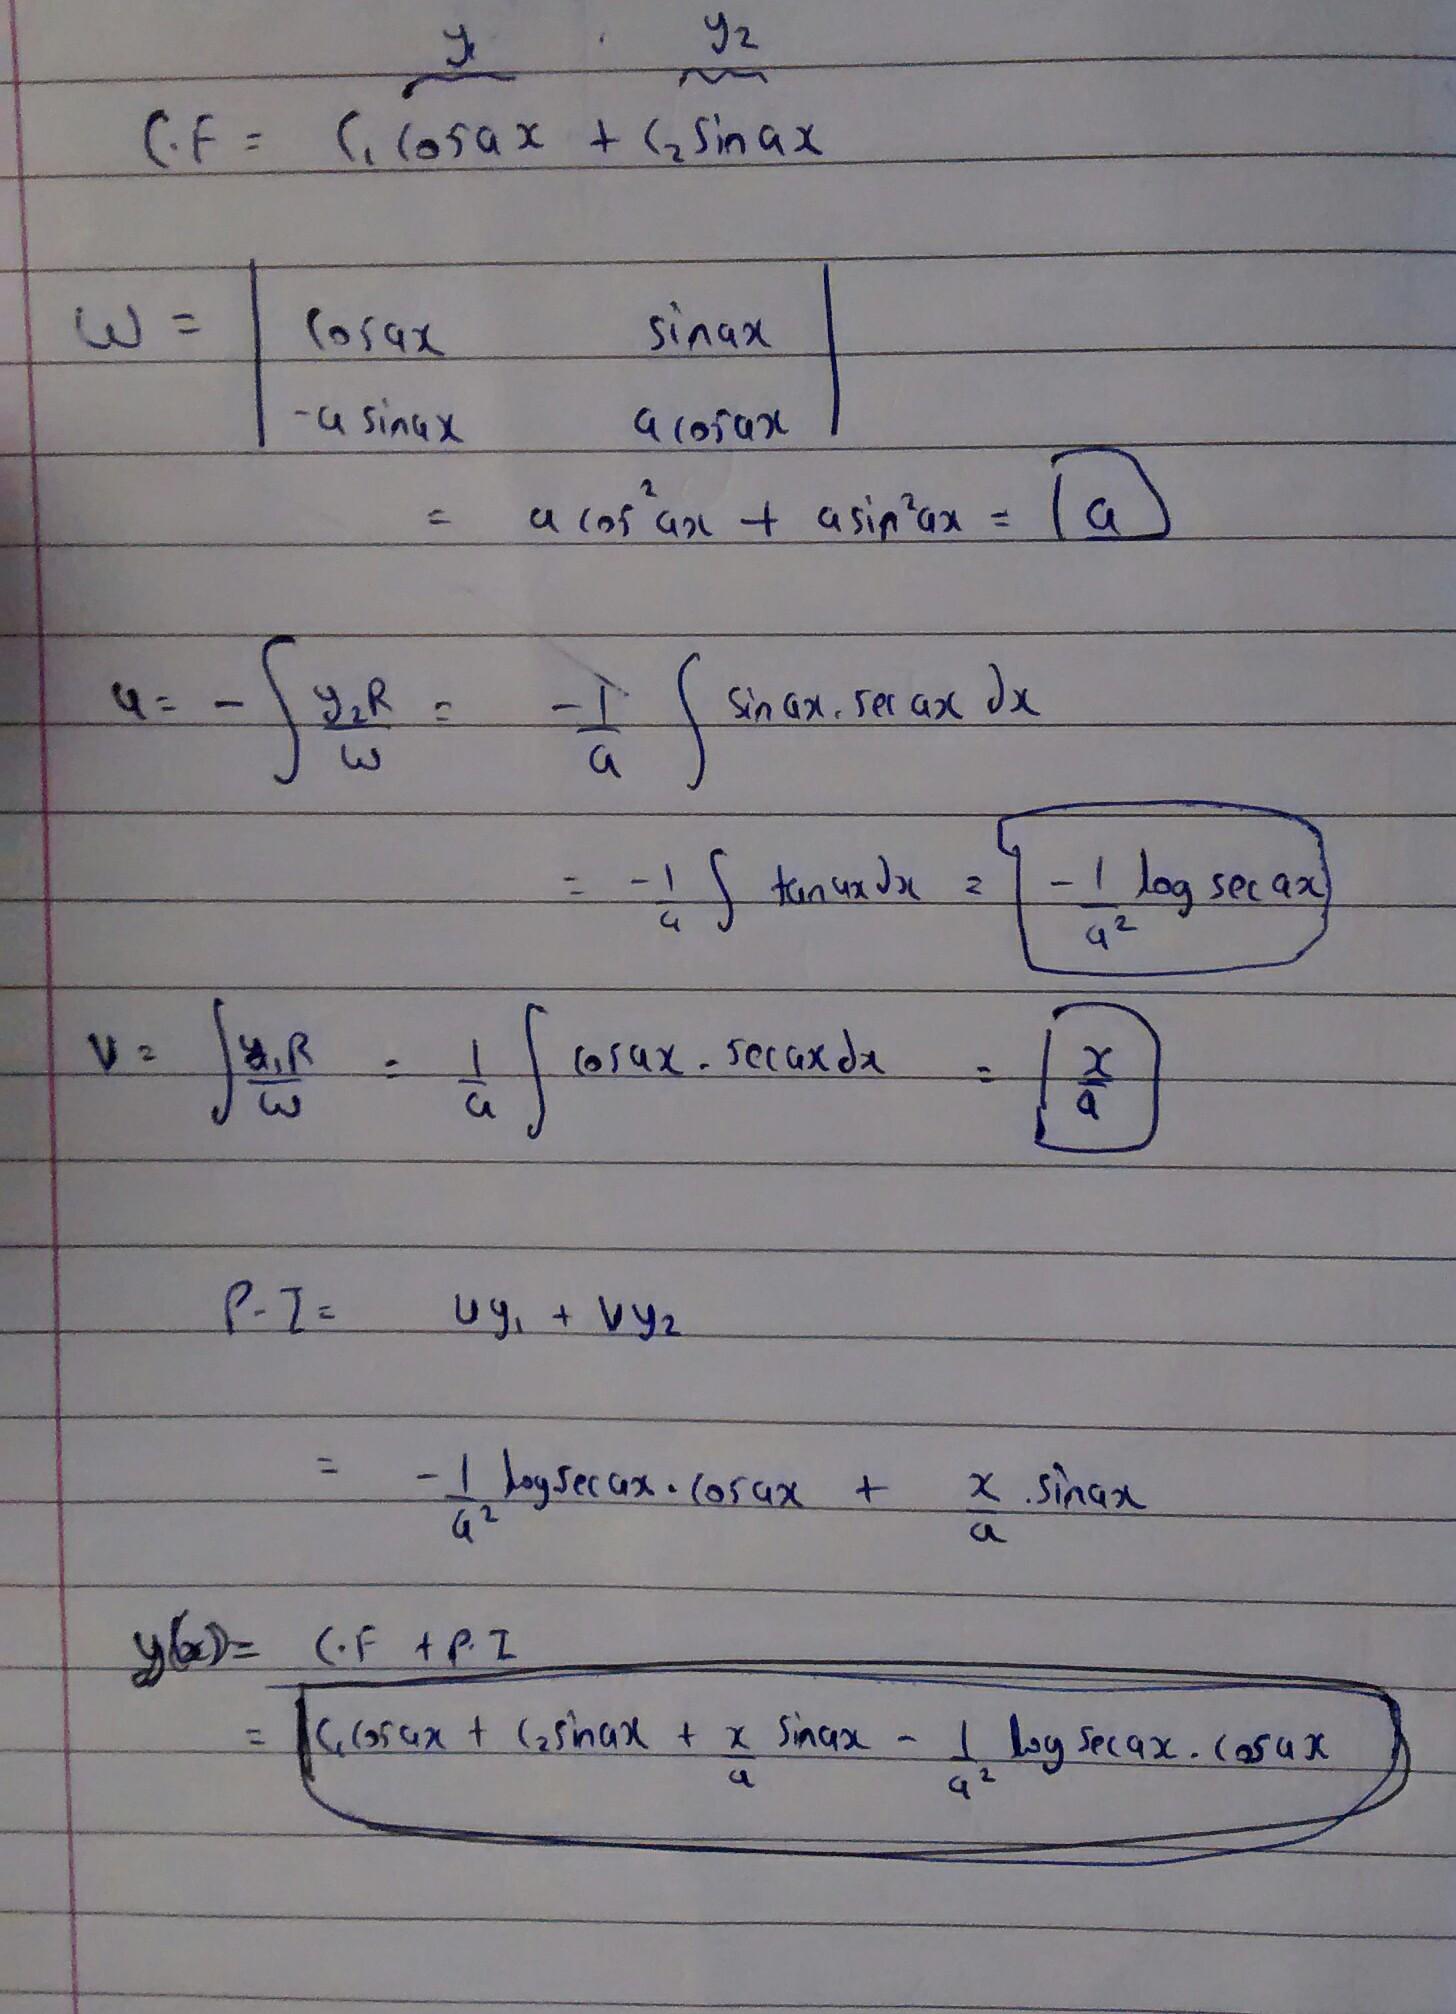 y₁ y₂
C.F = C₁ cosax + C₂ sinax
W = | cosax sinax |
| -a sinax a cosax |
= a cos²ax + a sin²ax = a
u = - ∫ y₂R/W = -1/a ∫ sinax . secax dx
= -1/a ∫ tanax dx = -1/a² log secax
v = ∫ y₁R/W = 1/a ∫ cosax . secax dx = x/a
P.I = uy₁ + vy₂
= -1/a² log secax . cosax + x/a . sinax
y(x) = C.F + P.I
= C₁cosax + C₂sinax + x/a sinax - 1/a² log secax . cosax